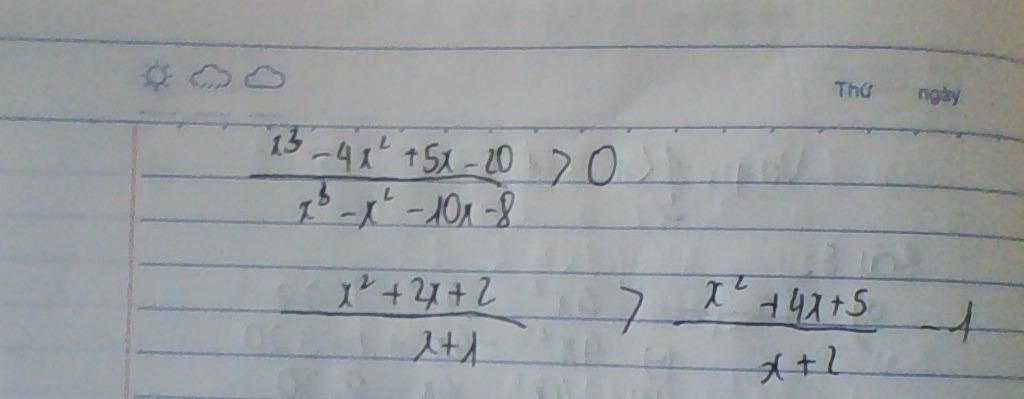 Thứ ngày
x³ - 4x² + 5x - 20 > 0
x³ - x² - 10x - 8
x² + 2x + 2 > x² + 4x + 5 - 1
x + 1 x + 2